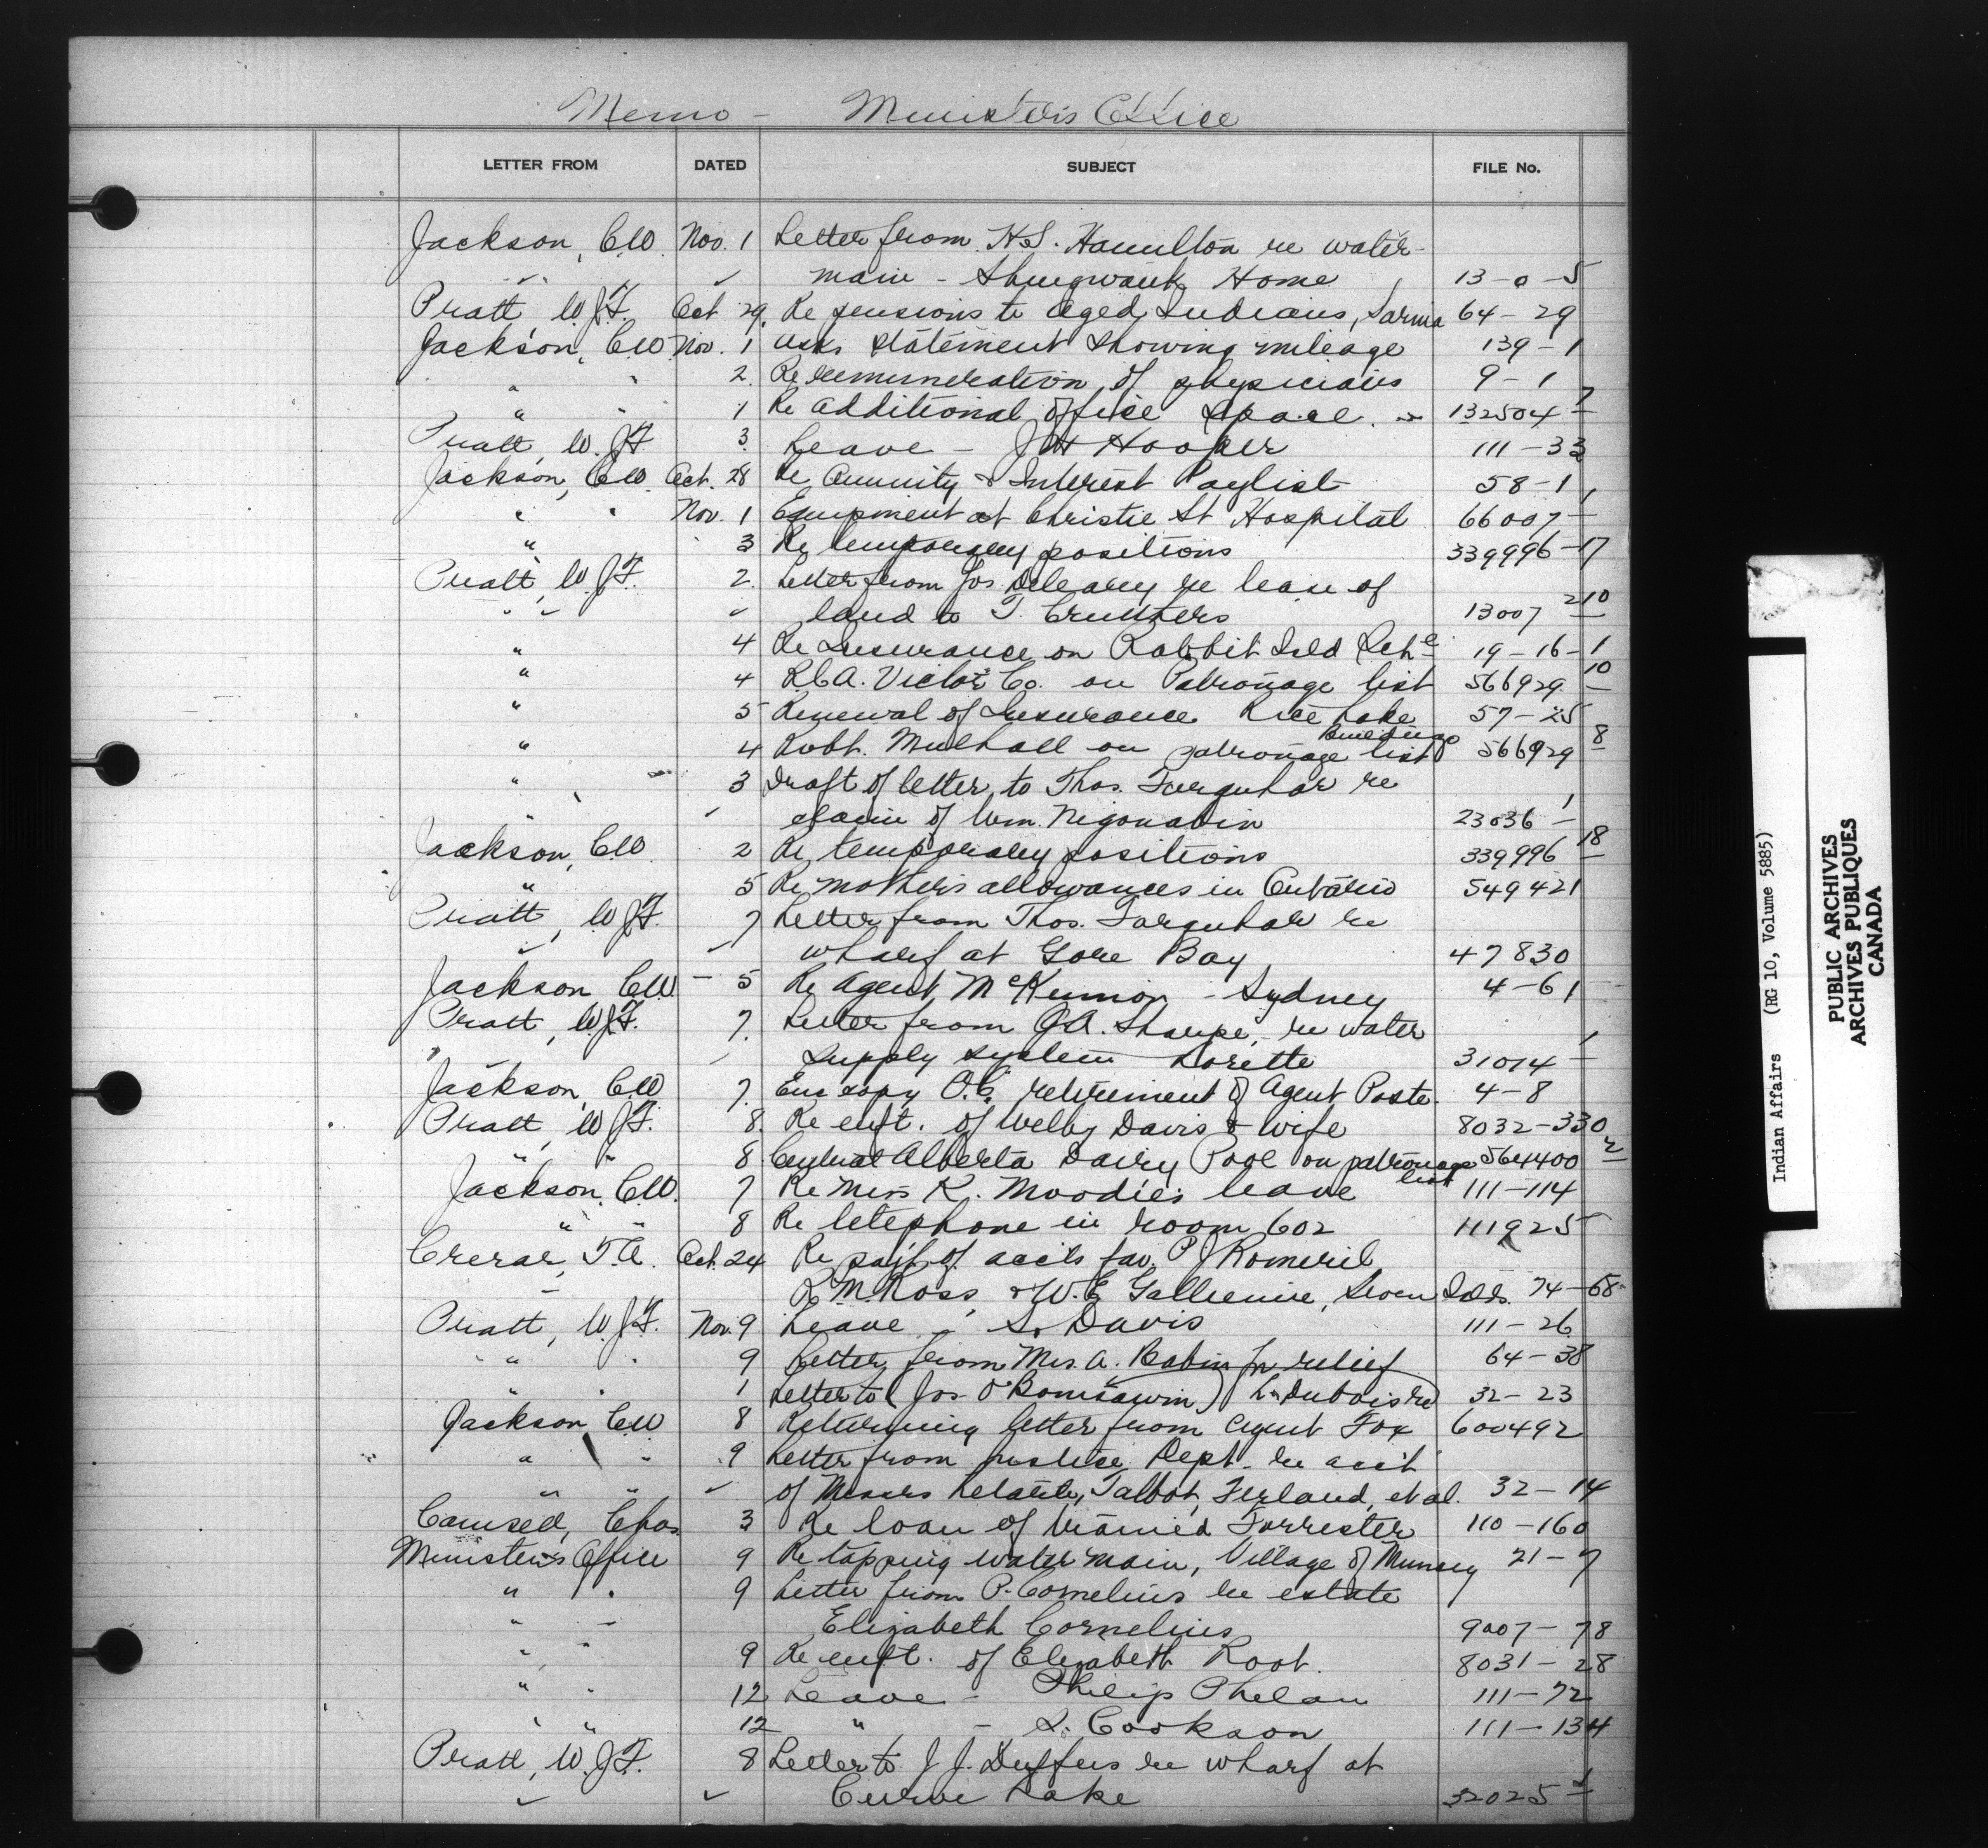 Memo - Minister's Office
LETTER FROM DATED SUBJECT FILE No.
Jackson, C.W. Nov. 1 Letter from K.S. Hamilton re water-
" " main - Shingwauk Home 13-0-5
Pratt W.J.F. Oct 29. Re pensions to aged Indians, Sarnia 64-29
Jackson, C.W. Nov. 1 Asks statement showing mileage 139-1
" " 2. Re remuneration of physicians 9-1
" " 1 Re additional office space. 132504-7
Pratt, W.J.F. 3. Leave - J.H. Hooper 111-33
Jackson, C.W. Oct. 28 Re Annuity & Interest Paylist 58-1
" " Nov. 1 Equipment at Christie St Hospital 66007-1
" 3 Re temporary positions 339996-17
Pratt, W.J.F. 2. Letter from Jos. re lease of
" " " land to T. Cruthers 13007-210
" 4 Re Insurance on Rabbit Isld Sch. 19-16-1
" 4 R.C.A. Victor Co. on Patronage list 566929-10
" 5 Renewal of Insurance Rice Lake 57-25
buildings
" 4 Robt. Mulhall on patronage list 566929-8
" 3 Draft of letter to Thos. Farquhar re
" " claim of Wm. Nigonabin 23036-1
Jackson, C.W. 2 Re temporary positions 339996-18
" 5 Re mother's allowances in Ontario 549421
Pratt, W.J.F. 7 Letter from Thos. Farquhar re
" " wharf at Gore Bay 47830
Jackson C.W. - 5 Re Agent McKinnon - Sydney 4-61
Pratt, W.J.F. 7. Letter from J.A. Sharpe, re water
" " supply system Lorette 31014-1
Jackson, C.W. 7. Enc copy O.C. retirement of Agent Poste. 4-8
Pratt, W.J.F. 8. Re enft. of Welby Davis & wife 8032-330
" " 8. Central Alberta Dairy Pool on patronage 564400-2
list
Jackson, C.W. 7 Re Miss K. Moodie's leave 111-114
" " 8 Re telephone in room 602 111925
Crerar, T.A. Oct. 24 Re payt. of accts fav. P J Romeril
R.M. Ross, & W.E. Gallienne, Seven Islds. 74-68
Pratt, W.J.F. Nov. 9 Leave - S. Davis 111-26
" " 9 Letter from Mrs. A. Robin for relief 64-38
" " 1 Letter to (Jos O'Bomsawin) L. Dubois re 32-23
Jackson C.W. 8 Returning letter from Agent Fox 600492
" " 9 Letter from Justice Dept. re acct
" " " of Messrs Talbot, Ferland, et al. 32-14
Camsell, Chas. 3 Re loan of Forrester 110-160
Minister's Office 9 Re tapping water main, Village of Muncey 21-7
" " 9 Letter from P. Cornelius re estate
" - Elizabeth Cornelius 9007-78
" " 9 Re enft. of Elizabeth Root. 8031-28
" " 12 Leave - Philip Phelan 111-72
" " 12 " - S. Cookson 111-134
Pratt, W.J.F. 8 Letter to J.J. Duffus re wharf at
" " Curve Lake 32025-1
Indian Affairs (RG 10, Volume 5885)
PUBLIC ARCHIVES
ARCHIVES PUBLIQUES
CANADA